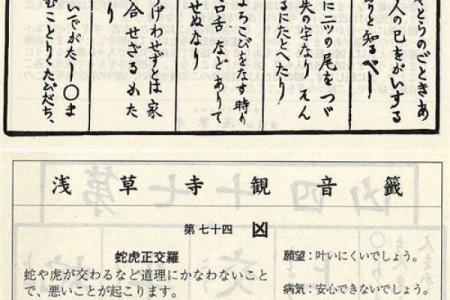 やとらのごときあ
人の已をがいする
りと知るべし
に二ツの尾をつゞ
失の字なり そん
るにたとへたり
口舌などありて
せぬなり
げわせずとは家
り
いでがたし〇ま
浅草寺観音籤
第七十四 凶
蛇虎正交羅
蛇や虎が交わるなど道理にかなわないこと
で、悪いことが起こります。
願望：叶いにくいでしょう。
病気：安心できないでしょう。